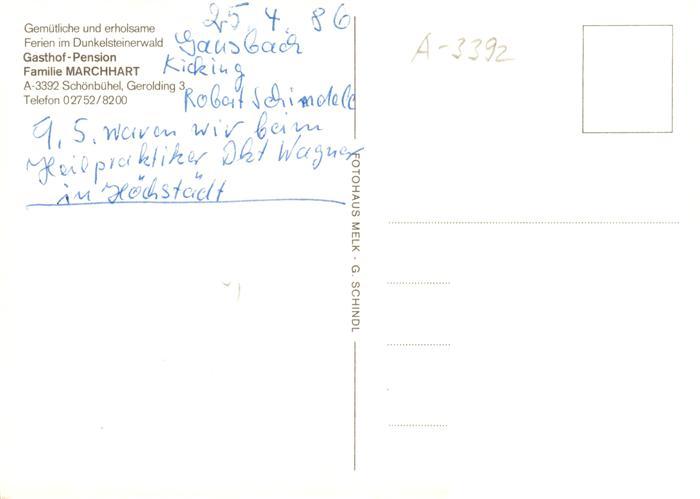 Gemütliche und erholsame
Ferien im Dunkelsteinerwald
Gasthof-Pension
Familie MARCHHART
A-3392 Schönbühel, Gerolding 3
Telefon 02752/8200
25. 4. 86
Gansbach
Kicking
Robert
9. 5. waren wir beim
Heilpraktiker Dkt Wagner
in Höchstädt
FOTOHAUS MELK · G. SCHINDL
A-3392